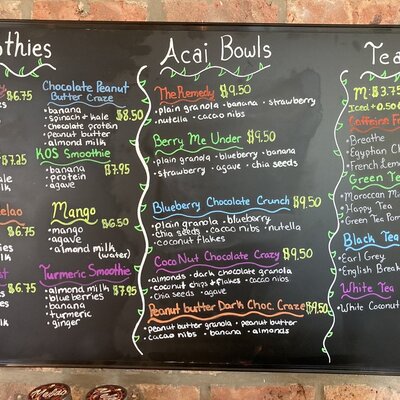 othies
$6.75
lk
$7.25
lk
elao
$6.75
lk
st
$6.75
lk
Chocolate Peanut
Butter Craze
• banana $8.50
• spinach + kale
• chocolate protein
• peanut butter
• almond milk
KOS Smoothie
• banana $7.95
• protein
• agave
Mango
• mango $6.50
• agave
• almond milk
(water)
Turmeric Smoothie
• almond milk $7.95
• blueberries
• banana
• turmeric
• ginger
Acai Bowls
The Remedy $9.50
• plain granola • banana • strawberry
• nutella • cacao nibs
Berry Me Under $9.50
• plain granola • blueberry • banana
• strawberry • agave • chia seeds
Blueberry Chocolate Crunch $9.50
• plain granola • blueberry
• chia seeds • cacao nibs • nutella
• coconut flakes
CocoNut Chocolate Crazy $9.50
• almonds • dark chocolate granola
• coconut chips + flakes • cacao nibs
• chia seeds • agave
Peanut butter Dark Choc Craze $9.50
• Peanut butter granola • peanut butter
• cacao nibs • banana • almonds
Tea
M: $3.75
Iced + 0.50
Caffeine Fr
• Breathe
• Egyptian Ch
• French Lemon
Green Te
• Moroccan M
• Happy Tea
• Green Tea Pom
Black Tea
• Earl Grey
• English Break
White Tea
• White Coconut